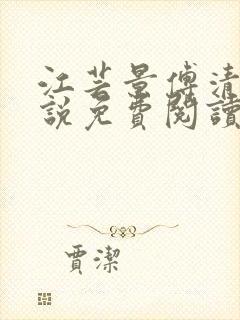 江芸景傅清
說免費閱讀
賈潔